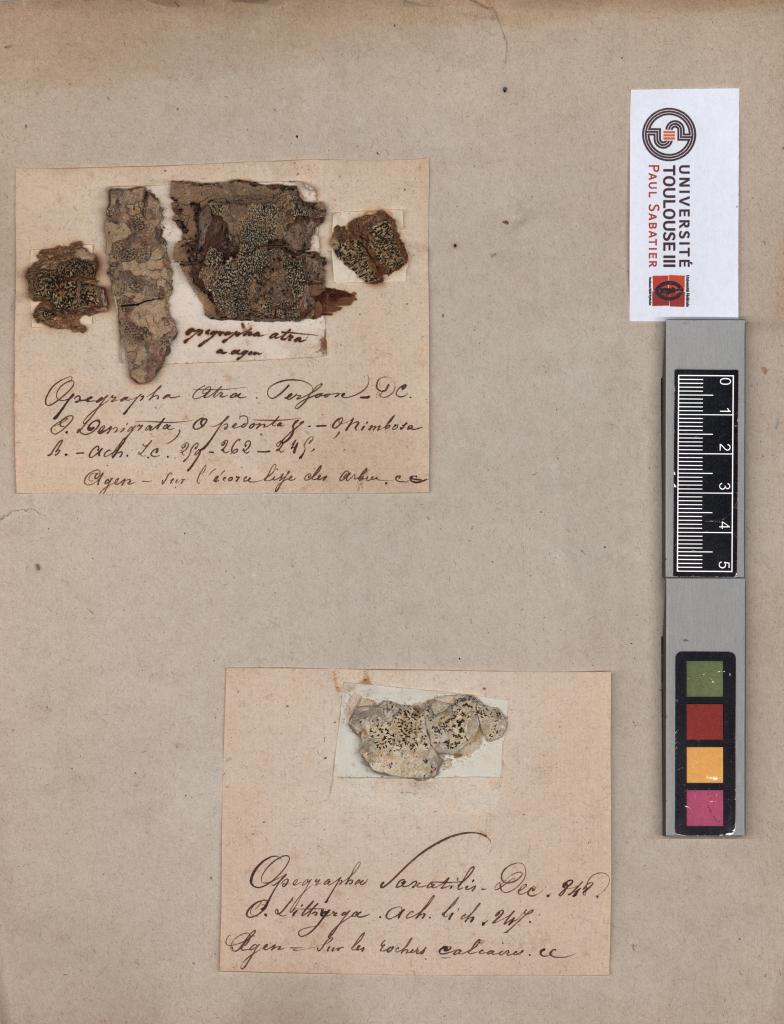 UNIVERSITÉ
TOULOUSE III
PAUL SABATIER
opegrapha atra
a agen
Opegrapha Atra. Persoon - DC.
O. Denigrata, O. - O, Nimbosa
B. - Ach. L.c. 259 - 262 - 245.
Agen - Sur l'écorce lisse des arbres. cc
0 1 2 3 4 5
Opegrapha Saxatilis - Dec. 848.
O. Lithyrga. Ach. lich. 247.
Agen = Sur les rochers calcaires. cc